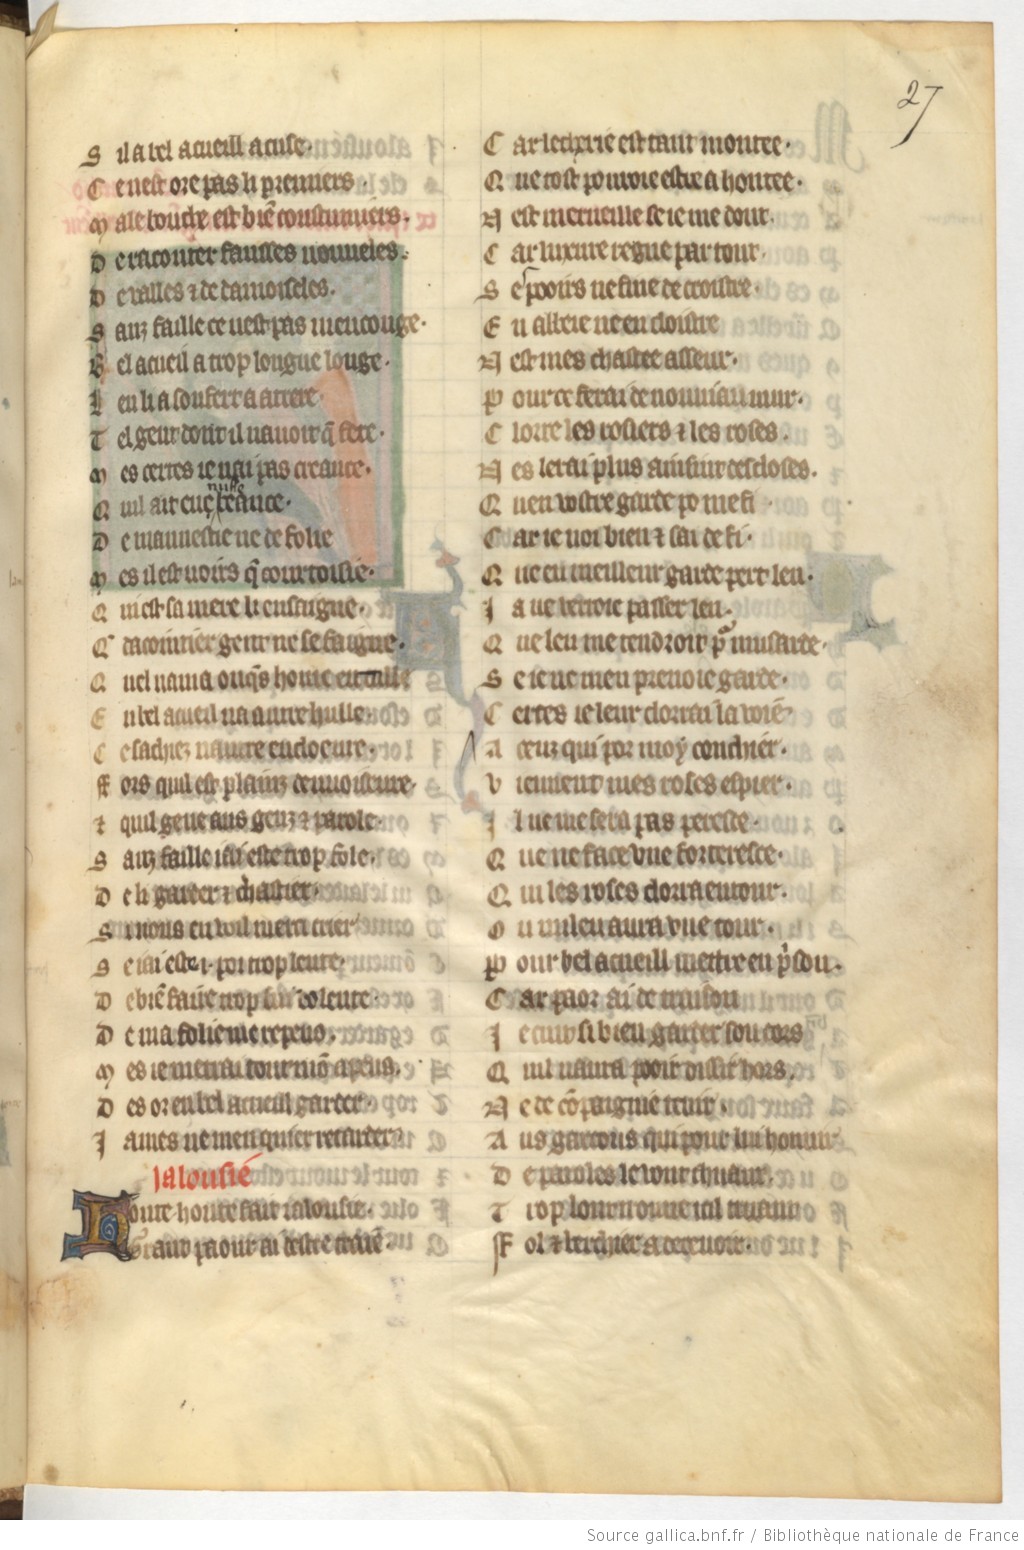 27
S il a bel acueill acuse.
C e nest ore pas li premiers.
M ale bouche est bien coustumiers.
D e raconter fausses nouueles.
D e valles ⁊ de damoiseles.
S anz faille ce nest pas mencouge.
B el acueil a trop longue longe.
L en li a souffert a atrere
T el gent dont il nauoit q̃ fere.
M es certes ie nai pas creance.
Q uil ait eue nulle beance.
D e mauuestie ne de folie
M es il est uoirs q̃ courtoisie.
Q ui est sa mere li enseigne.
Q̃ dacointier gent ne se faigne.
Q uel nama onq̃s home
E n bel acueil na autre hulle.
C e sachiez nautre encloeure.
F ors quil est plainz denuoiseure.
⁊ quil geue aus genz ⁊ parole.
S anz faille iai este trop fole.
D e li garder ⁊ chastier.
S i uous en voil merci crier
S e iai este .i. poi trop lente.
D e bien faire trop sui dolente.
D e ma folie me repens.
M es ie metrai tout mon apens.
D es or en bel acueill garder.
J ames ne men quier retarder
Jalousie
Honte honte fait ialousie.
Grant paour ai destre traie.
C ar lecherie est tant montee.
Q ue tost porroie estre ahontee.
N est merueille se ie me dout.
C ar luxure regne par tout.
S e pooirs ne fine de croistre.
E n abbeie ne en cloistre
N est mes chastee asseur.
P our ce ferai de nouuiau mur.
C lorre les rosiers ⁊ les roses.
N es lerai plus ainsinc descloses.
Q uen vostre garde po me fi
C ar ie uoi bien ⁊ sai de fi.
Q ue en meilleur garde pert len.
J a ne verroie passer len.
Q ue len me tendroit pour musarde.
S e ie ne men prenoie garde.
C ertes ie leur clorrai la uoie
A ceuz qui por moy conchier.
V iennent mes roses espier.
J l ne me sera pas perece.
Q ue ne face vne forteresce.
Q ui les roses clorra entour.
O u milieu aura vne tour.
P our bel acueill mettre en prison.
C ar paor ai de traison
J e cuit si bien garder son cors
Q uil naura pooir dissir hors.
N e de compaignie tenir.
A us garcons qui pour lui honnir
D e paroles le vont chuant.
T rop lont trouue ici truant
F ol ⁊ bergier a deceuoir.
Source gallica.bnf.fr / Bibliothèque nationale de France